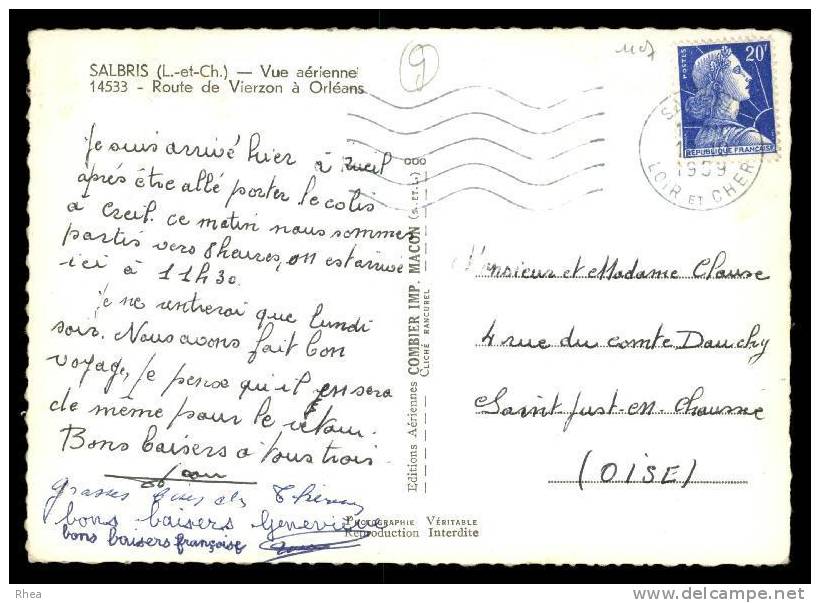 SALBRIS (L.-et-Ch.) — Vue aérienne
14533 - Route de Vierzon à Orléans
9
1107
POSTES 20F
REPUBLIQUE FRANCAISE
1959
LOIR ET CHER
Je suis arrivé hier à rueil
après être allé porter le colis
à Creil. ce matin nous sommes
partis vers 8 heures, on est arrivé
ici à 11h30.
Je ne rentrerai que lundi
soir. Nous avons fait bon
voyage, je pense qu'il en sera
de même pour le retour.
Bons baisers à tous trois.
bons baisers Geneviève
bons baisers françoise
Editions Aériennes COMBIER IMP. MACON (S.-ET-L.)
CLICHÉ RANCUREL
PHOTOGRAPHIE VÉRITABLE
Reproduction Interdite
Monsieur et Madame Clause
4 rue du comte Dauchy
Saint Just-en-Chaussée
(OISE)
Rhea
www.delcampe.net